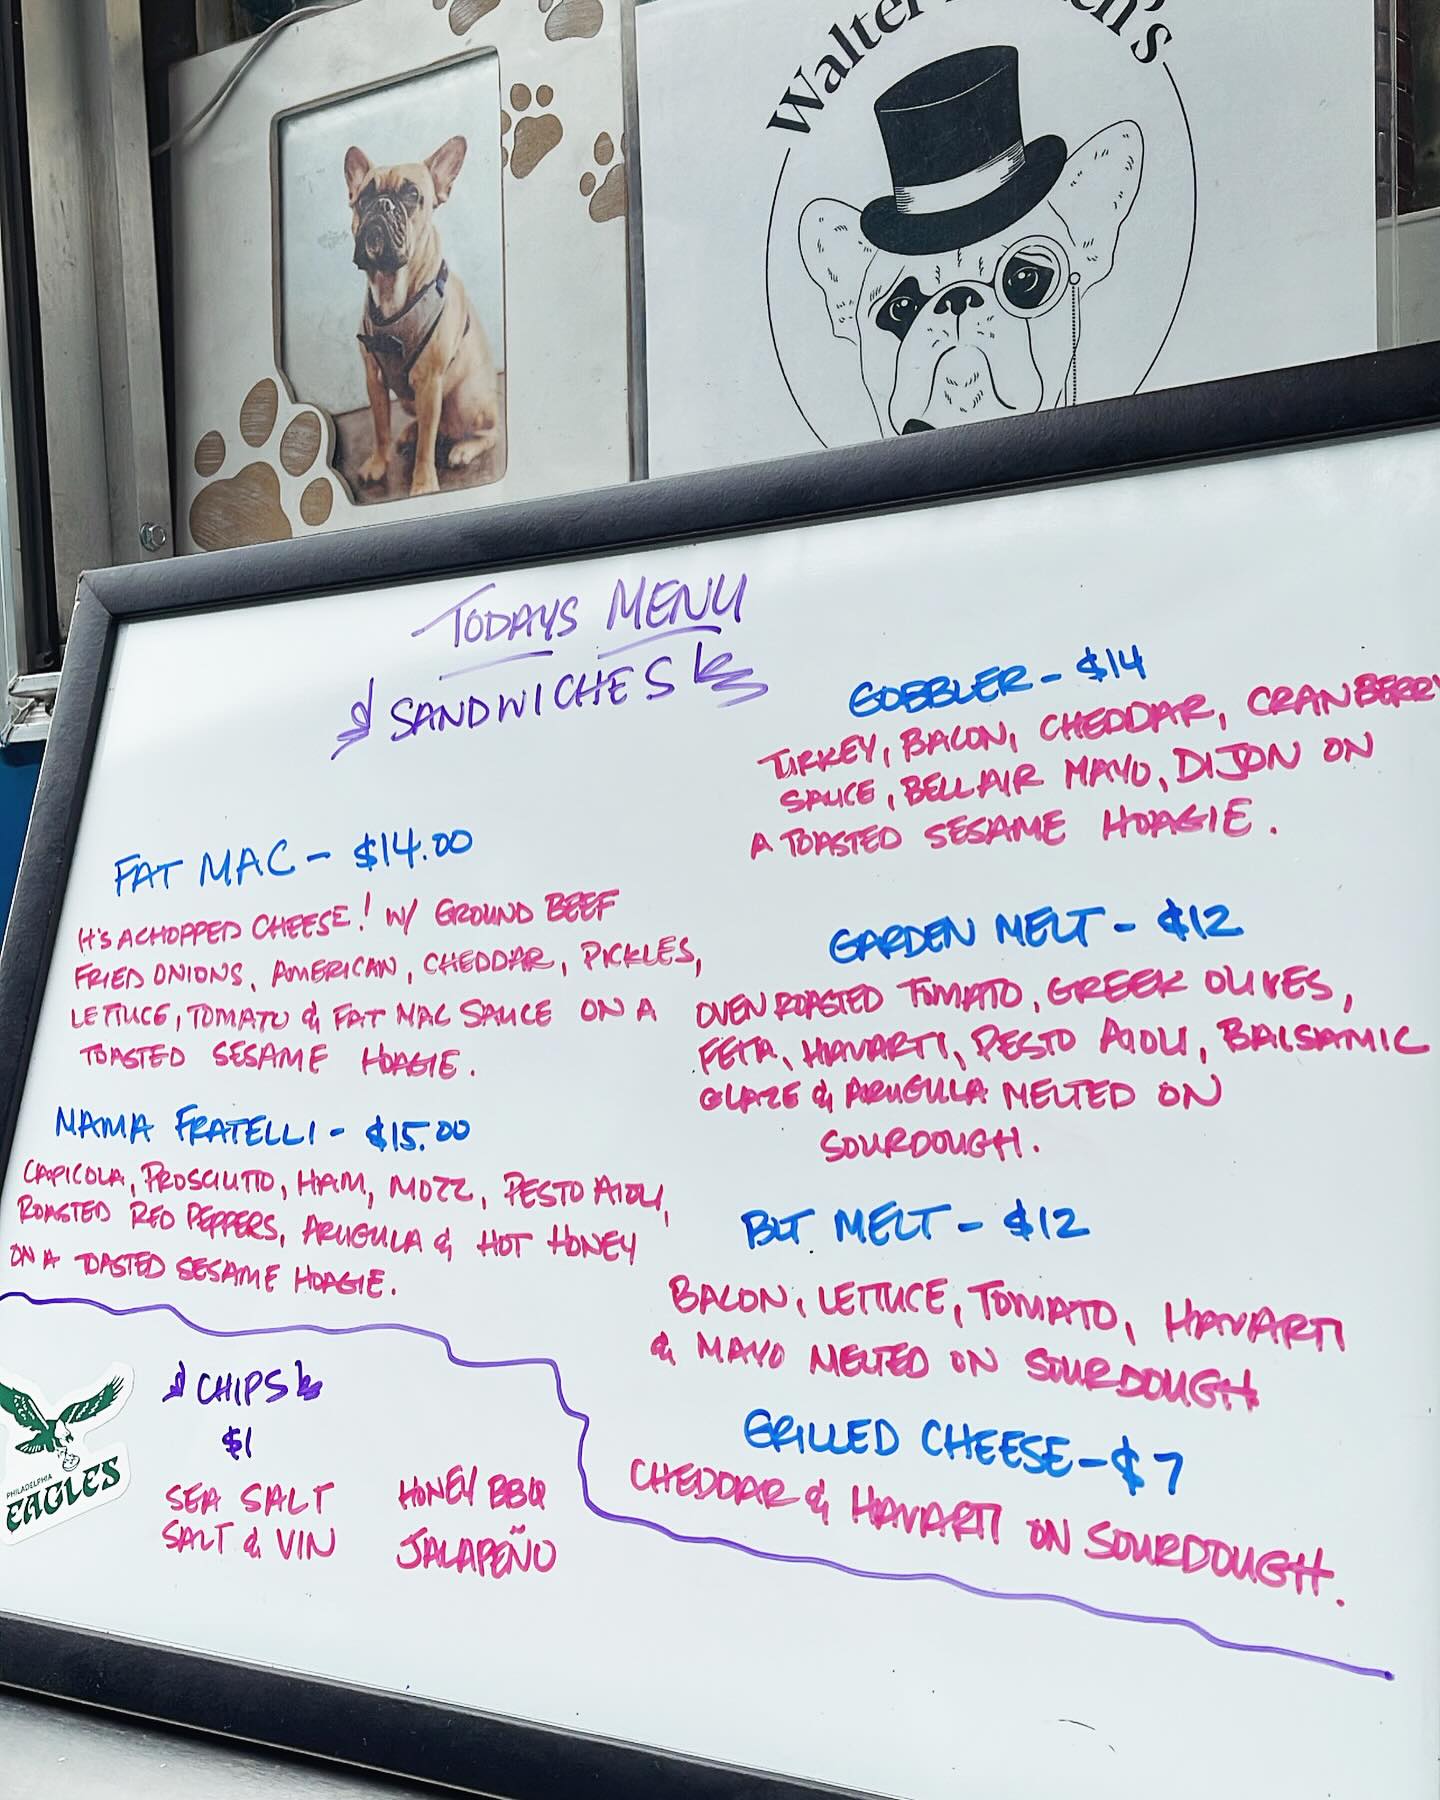 Walter
TODAYS MENU
SANDWICHES
FAT MAC - $14.00
IT'S A CHOPPED CHEESE! W/ GROUND BEEF
FRIED ONIONS, AMERICAN, CHEDDAR, PICKLES,
LETTUCE, TOMATO & FAT MAC SAUCE ON A
TOASTED SESAME HOAGIE.
MAMA FRATELLI - $15.00
CAPICOLA, PROSCIUTTO, HAM, MOZZ, PESTO AIOLI,
ROASTED RED PEPPERS, ARUGULA & HOT HONEY
ON A TOASTED SESAME HOAGIE.
CHIPS
$1
SEA SALT
SALT & VIN
HONEY BBQ
JALAPEÑO
PHILADELPHIA
EAGLES
GOBBLER - $14
TURKEY, BACON, CHEDDAR, CRANBERRY
SAUCE, BELLAIR MAYO, DIJON ON
A TOASTED SESAME HOAGIE.
GARDEN MELT - $12
OVEN ROASTED TOMATO, GREEK OLIVES,
FETA, HAVARTI, PESTO AIOLI, BALSAMIC
GLAZE & ARUGULA MELTED ON
SOURDOUGH.
BLT MELT - $12
BACON, LETTUCE, TOMATO, HAVARTI
& MAYO MELTED ON SOURDOUGH
GRILLED CHEESE - $7
CHEDDAR & HAVARTI ON SOURDOUGH.